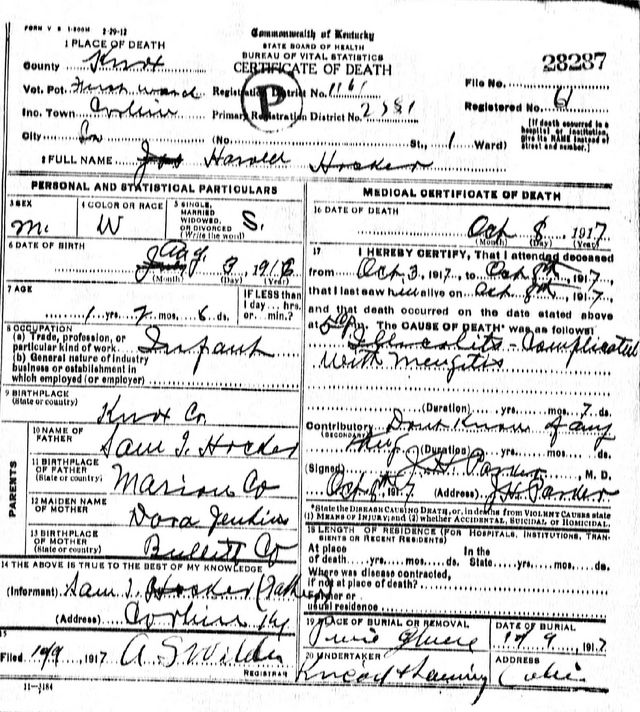 FORM V S 1-500M 2-29-12
Commonwealth of Kentucky
STATE BOARD OF HEALTH
BUREAU OF VITAL STATISTICS
CERTIFICATE OF DEATH
28287
1 PLACE OF DEATH
County Knox
Vot. Pct. First ward Registration District No. 1161
File No.
Inc. Town Corbin Primary Registration District No. 2581
Registered No. 61
P
City (No. St., 1 Ward)
[If death occurred in a hospital or institution, give its NAME instead of street and number.]
2 FULL NAME Harold Hocker
PERSONAL AND STATISTICAL PARTICULARS
3 SEX M.
4 COLOR OR RACE W
5 SINGLE, MARRIED WIDOWED, OR DIVORCED (Write the word) S.
6 DATE OF BIRTH
Aug. 3, 1916
(Month) (Day) (Year)
7 AGE
1 yrs. 2 mos. 6 ds.
IF LESS than 1 day... hrs. or... min.?
8 OCCUPATION
(a) Trade, profession, or particular kind of work. Infant
(b) General nature of industry business or establishment in which employed (or employer)
9 BIRTHPLACE
(State or country) Knox Co
PARENTS
10 NAME OF FATHER Sam T. Hocker
11 BIRTHPLACE OF FATHER (State or country) Marion Co
12 MAIDEN NAME OF MOTHER Dora Jenkins
13 BIRTHPLACE OF MOTHER (State or country) Bullitt Co
14 THE ABOVE IS TRUE TO THE BEST OF MY KNOWLEDGE
(Informant) Sam T. Hocker (Father
(Address) Corbin Ky
15
Filed 10/9 1917 A S Wilder
REGISTRAR
11-3184
MEDICAL CERTIFICATE OF DEATH
16 DATE OF DEATH
Oct 8, 1917
(Month) (Day) (Year)
17 I HEREBY CERTIFY, That I attended deceased
from Oct, 3, 1917, to Oct 8th, 1917,
that I last saw him alive on Oct 8th, 1917,
and that death occurred on the date stated above
at 5 P.m. The CAUSE OF DEATH* was as follows:
Illiocolitis - Complicated
with Mengitis
(Duration) yrs. mos. 7 ds.
Contributory Dont Know of any
(SECONDARY)
(Duration) yrs. mos. ds.
(Signed) J. H. Parker, M. D.
Oct 8th, 1917 (Address) J H Parker
*State the DISEASE CAUSING DEATH, or, in deaths from VIOLENT CAUSES state (1) MEANS OF INJURY; and (2) whether ACCIDENTAL, SUICIDAL or HOMICIDAL.
18 LENGTH OF RESIDENCE (FOR HOSPITALS, INSTITUTIONS, TRANSIENTS OR RECENT RESIDENTS)
At place of death yrs. mos. ds. In the State yrs. mos. ds.
Where was disease contracted, if not at place of death?
Former or usual residence
19 PLACE OF BURIAL OR REMOVAL Pine Grove
DATE OF BURIAL 10/9, 1917
20 UNDERTAKER
ADDRESS